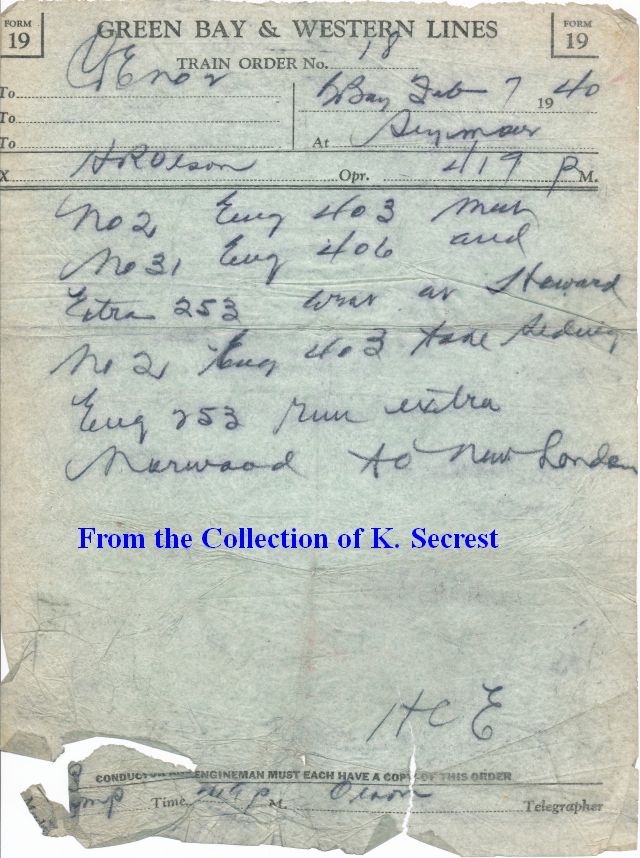 FORM 19 GREEN BAY & WESTERN LINES FORM 19
TRAIN ORDER No. 18
To C&E No 2 GBay Feb 7 1940
To
To At Seymour
X H R Olson Opr. 419 P M.
No 2 Eng 403 meet
No 31 Eng 406 and
Extra 253 west at Howard
No 2 Eng 403 take siding
Eng 253 run extra
Norwood to New London
From the Collection of K. Secrest
H C E
CONDUCTOR AND ENGINEMAN MUST EACH HAVE A COPY OF THIS ORDER
Time P M. Olson Telegrapher